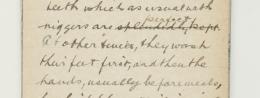 teeth which as usual with
niggers are splendidly kept perfect.
At other times, they wash
their feet first, and then the
hands, usually before meals,